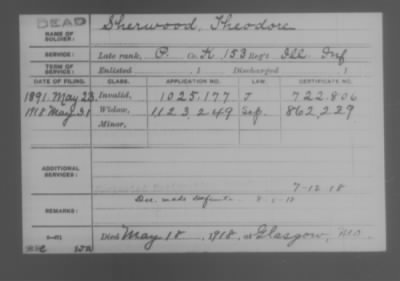 DEAD
NAME OF SOLDIER: Sherwood, Theodore
SERVICE: Late rank, P. Co. K, 153 Reg't Ill. Inf
TERM OF SERVICE: Enlisted , 1 Discharged , 1
DATE OF FILING. CLASS. APPLICATION NO. LAW. CERTIFICATE NO.
1891 May 23 Invalid, 1025,177 J 722,806
1918 May 31 Widow, 1123,249 862,229
Minor,
ADDITIONAL SERVICES:
7-12 18
REMARKS:
Died May 18, 1918, at Glasgow, Mo.